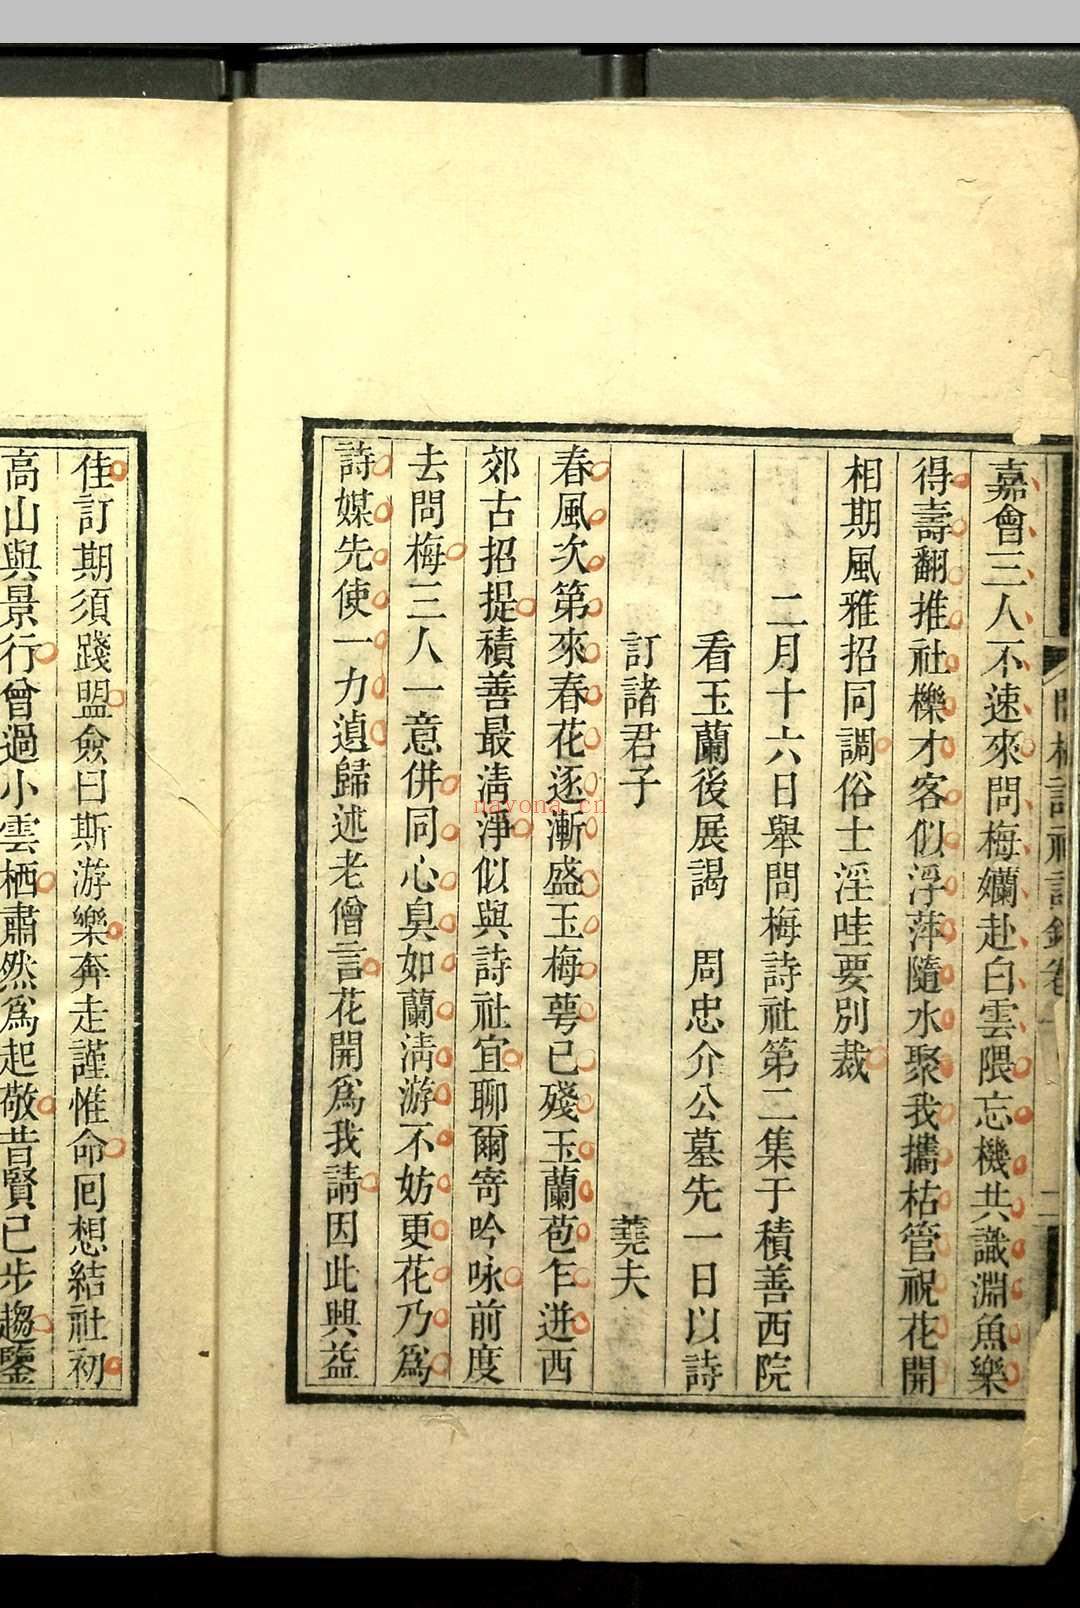 嘉會三人不速來問梅孏赴白雲隈忘機共識淵魚樂
得壽翻推社櫟才客似浮萍隨水聚我攜枯管祝花開
相期風雅招同調俗士淫哇要別裁
二月十六日舉問梅詩社第二集于積善西院
看玉蘭後展謁　周忠介公墓先一日以詩
訂諸君子　蕘夫
春風次第來春花逐漸盛玉梅蕚已殘玉蘭苞乍迸西
郊古招提積善最淸淨似與詩社宜聊爾寄吟咏前度
去問梅三人一意併同心臭如蘭淸游不妨更花乃爲
詩媒先使一力遉歸述老僧言花開爲我請因此興益
佳訂期須踐盟僉曰斯游樂奔走謹惟命囘想結社初
高山與景行曾過小雲栖肅然爲起敬昔賢已步趨鑒
問梅詩社詩鈔卷一
二
nayona.cn